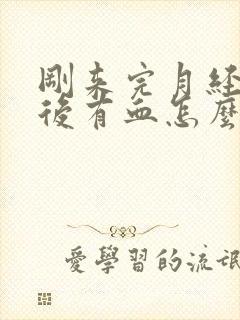 剛來完月経
後有血怎麼
愛學習的流氓